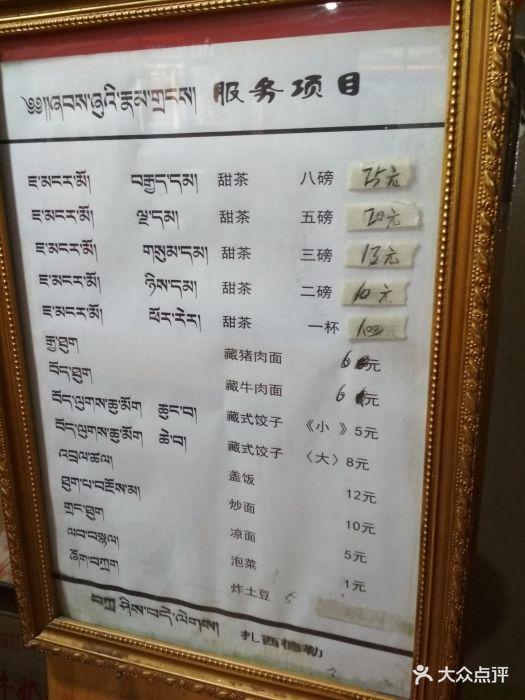 ༄༅།།ཞབས་ཞུའི་རྣམ་གྲངས། 服务项目
ཇ་མངར་མོ། བརྒྱད་དམ། 甜茶 八磅 25元
ཇ་མངར་མོ། ལྔ་དམ། 甜茶 五磅 20元
ཇ་མངར་མོ། གསུམ་དམ། 甜茶 三磅 13元
ཇ་མངར་མོ། ཉིས་དམ། 甜茶 二磅 10元
ཇ་མངར་མོ། ཕོར་རེར། 甜茶 一杯 元
རྒྱ་ཐུག 藏猪肉面 6元
བོད་ཐུག 藏牛肉面 6元
བོད་ལུགས་ཆུ་མོག ཆུང་བ། 藏式饺子 《小 》5元
བོད་ལུགས་ཆུ་མོག ཆེ་བ། 藏式饺子 〈大〉8元
འབྲལ་ཚལ། 盖饭 12元
ཐུག་པ་བརྔོས་མ། 炒面 10元
གྲང་ཐུག 凉面 5元
ལབ་བསྙལ། 泡菜 1元
ཞོག་བཀྲག 炸土豆 5
བཀྲ་ཤིས་བདེ་ལེགས། 扎西德勒
大众点评